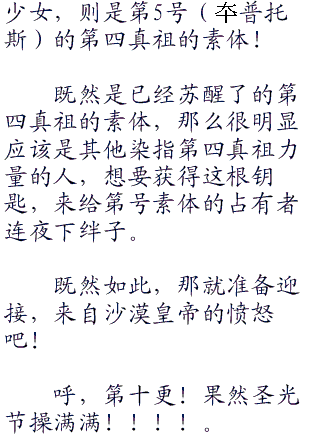 少女，则是第5号（普托
斯）的第四真祖的素体！
既然是已经苏醒了的第
四真祖的素体，那么很明显
应该是其他染指第四真祖力
量的人，想要获得这根钥
匙，来给第号素体的占有者
连夜下绊子。
既然如此，那就准备迎
接，来自沙漠皇帝的愤怒
吧！
呼，第十更！果然圣光
节操满满！！！！。